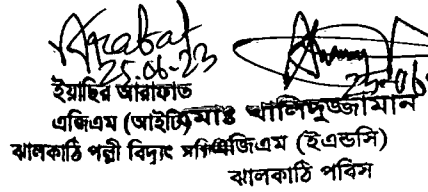 Arabat
25.06.23
ইয়াছির আরাফাত
এজিএম (আইটি)
ঝালকাঠি পল্লী বিদ্যুৎ
25.06
মোঃ খালিদুজ্জামান
এজিএম (ইএন্ডসি)
ঝালকাঠি পবিস